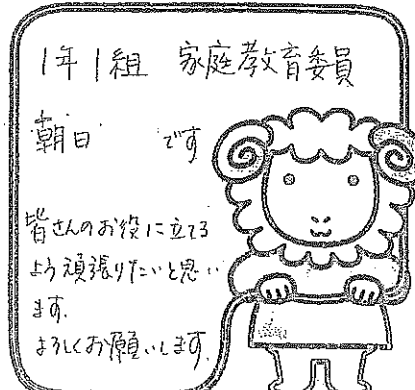 1年1組 家庭教育委員
朝日 です
皆さんのお役に立てる
よう頑張りたいと思い
ます。
よろしくお願いします。